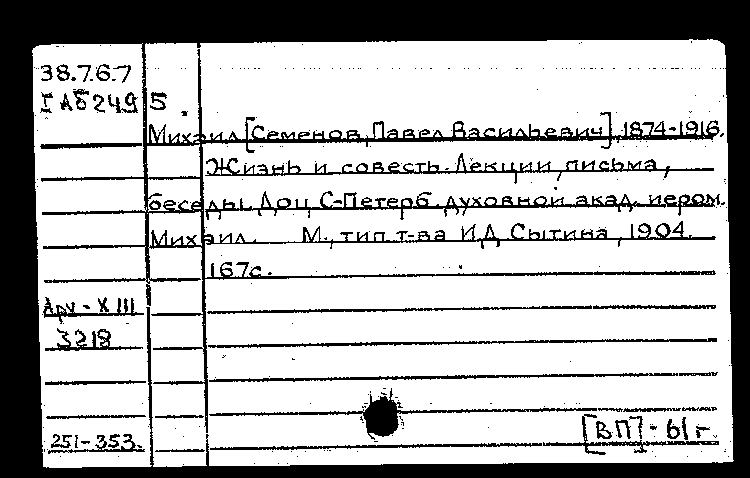 38.7.6.7
I Аб 249 5.
Михаил [Семенов, Павел Васильевич], 1874-1916.
Жизнь и совесть. Лекции, письма,
беседы Доц. С-Петерб. духовной акад. иером.
Михаил. М., тип. т-ва И.Д. Сытина, 1904.
167с.
Арх - XIII
3218
251-353.
[ВП] - 61 г.